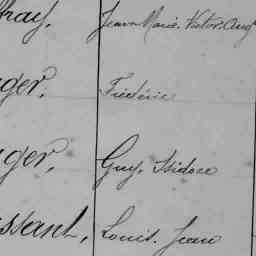 hay, Jean Marie. Victor. Aug
ger, Frédéric
ger, Guy, Isidore
ssant, Louis. Jean